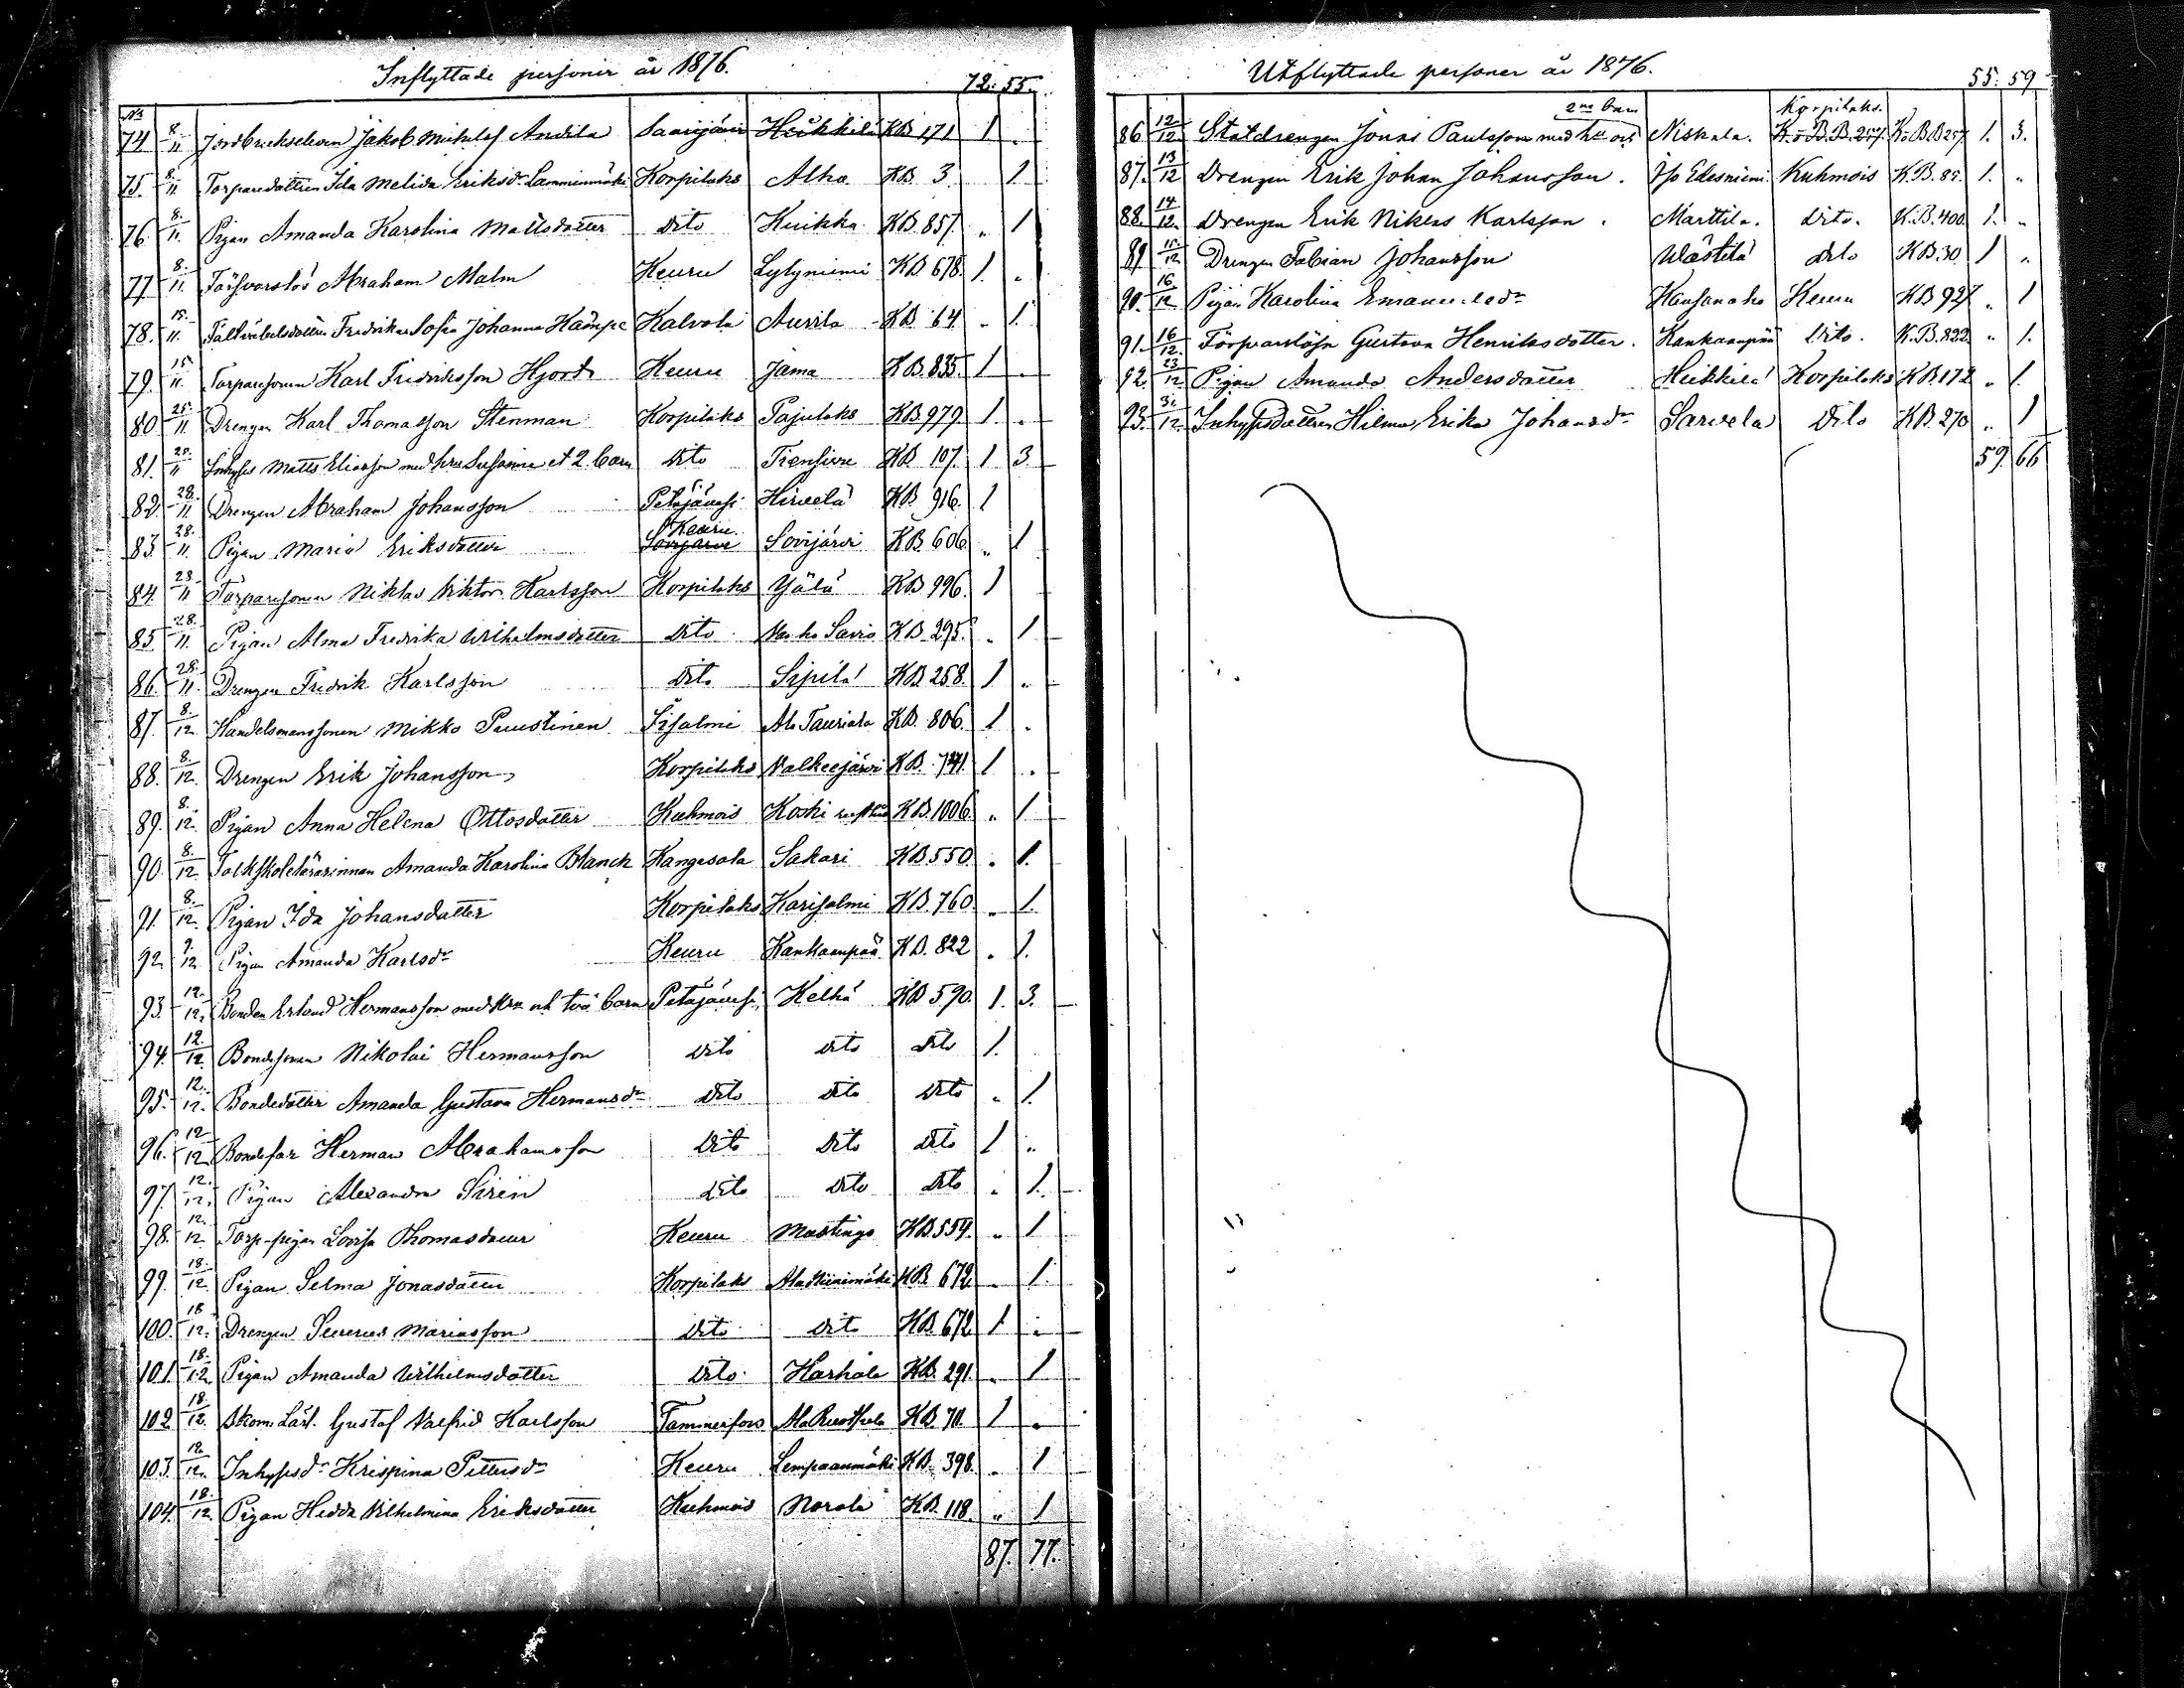 Inflyttade personer år 1876.
72. 55.
No
74 8/11 Jordbrukseleven Jakob Mikaelsf Andila Saarijärvi Heikkilä KB 171 1 "
75. 8./11 Torparedottren Ida Melida Eriksdr Lamminmäki Korpilaks Alho KB. 3 1.
76. 8./11. Pigan Amanda Karolina Mattsdotter dito Kuikka KB. 857. " 1
77 8./11. Försvarslös Abraham Malm Keuru Lylyniemi KB 678. 1. "
78. 15./11. Fredrika Sofia Johanna Kämpe Kalvola Aurila KB 64. " 1.
79. 15./11. Torparesonen Karl Fredriksson Hjort Keuru Jama KB. 835. 1 "
80 25./11 Drengen Karl Thomasson Stenman Korpilaks Pajulaks KB 979. 1. "
81. 25./11 Inhyses Matts Eliasson med hru Susanna et 2 barn dito Tiensivu KB 107. 1 3
82. 28./11 Drengen Abraham Johansson Petäjävesi Hirvelä KB 916. 1
83 28./11. Pigan Maria Eriksdotter Keuru Sovijärvi Sovijärvi KB. 606. " 1
84. 28./11 Torparesonen Niklas Viktor Karlsson Korpilaks Ylälä KB 996. 1
85 28./11. Pigan Alma Fredrika Wilhelmsdotter dito Savio KB. 295. " 1
86. 28./11. Drengen Fredrik Karlsson dito Sipilä KB. 258. 1 "
87. 8./12. Handelsmanssonen Mikko Puustinen Iisalmi Ala Tauriala KB. 806. 1 "
88. 8./12. Drengen Erik Johansson Korpilaks Valkeejärvi KB. 741. 1 "
89. 8./12. Pigan Anna Helena Ottosdotter Kuhmois Koski KB. 1006. " 1
90. 8./12. Folkskolelärarinnan Amanda Karolina Blanck Kangasala Sakari KB 550. " 1.
91. 8./12. Pigan Ida Johansdotter Korpilaks Karisalmi KB. 760. " 1.
92. 9./12. Pigan Amanda Karlsdr Keuru Kankaanpää KB. 822 " 1.
93. 12./12. Bonden Erland Hermansson med hru och två barn Petäjävesi Kelhä KB 590. 1. 3.
94. 12./12. Bondesonen Nikolai Hermansson dito dito dito 1.
95. 12./12. Bondedotter Amanda Gustava Hermansdr dito dito dito " 1.
96. 12/12 Bondefar Herman Abrahamsson dito dito dito 1 "
97. 12./12. Pigan Alexandra Siren dito dito dito " 1.
98. 12./12. Torp-pigan Lovisa Thomasdotter Keuru Mastings KB. 559. " 1
99. 18./12. Pigan Selma Jonasdotter Korpilaks Ala Niinimäki KB. 672 " 1.
100. 18/12. Drengen Severus Mariasson dito dito KB. 672 1 "
101. 18./12. Pigan Amanda Wilhelmsdotter dito Harhala KB. 291. " 1
102 18/12. Skom. Lärl. Gustaf Valfrid Karlsson Tammerfors Ala Ruothula KB. 711. 1 "
103. 18./12. Inhysesdr Krispina Pettersdr Keuru Lempaanmäki KB. 398. " 1
104. 18./12. Pigan Hedda Vilhelmina Eriksdotter Kuhmois Norola KB. 118. " 1
87. 77.
Utflyttade personer år 1876.
55. 59
2ne barn Korpilaks.
86 12/12. Statdrengen Jonas Paulsson med hu och Niskala. K.-B. B. 257. K.B.B 257. 1. 3.
87. 13/12 Drengen Erik Johan Johansson. Iso Edesniemi Kuhmois K.B. 85. 1. "
88. 14/12. Drengen Erik Nikens Karlsson. Marttila. dito. K.B. 400. 1. "
89 15./12 Drengen Fabian Johansson Wästilä dito KB. 30. 1 "
90. 16/12 Pigan Karolina Emanuelsdr Kansanaho Keuru KB 927 " 1
91. 16/12. Försvarslösa Gustava Henriksdotter. Kankaanpää dito. K.B. 822. " 1.
92. 23/12 Pigan Amanda Andersdotter Heikkilä Korpilaks KB 172 " 1.
93. 31/12. Inhysesdottren Hilma Erika Johansdr Sarvela dito KB. 270 " 1
59. 66